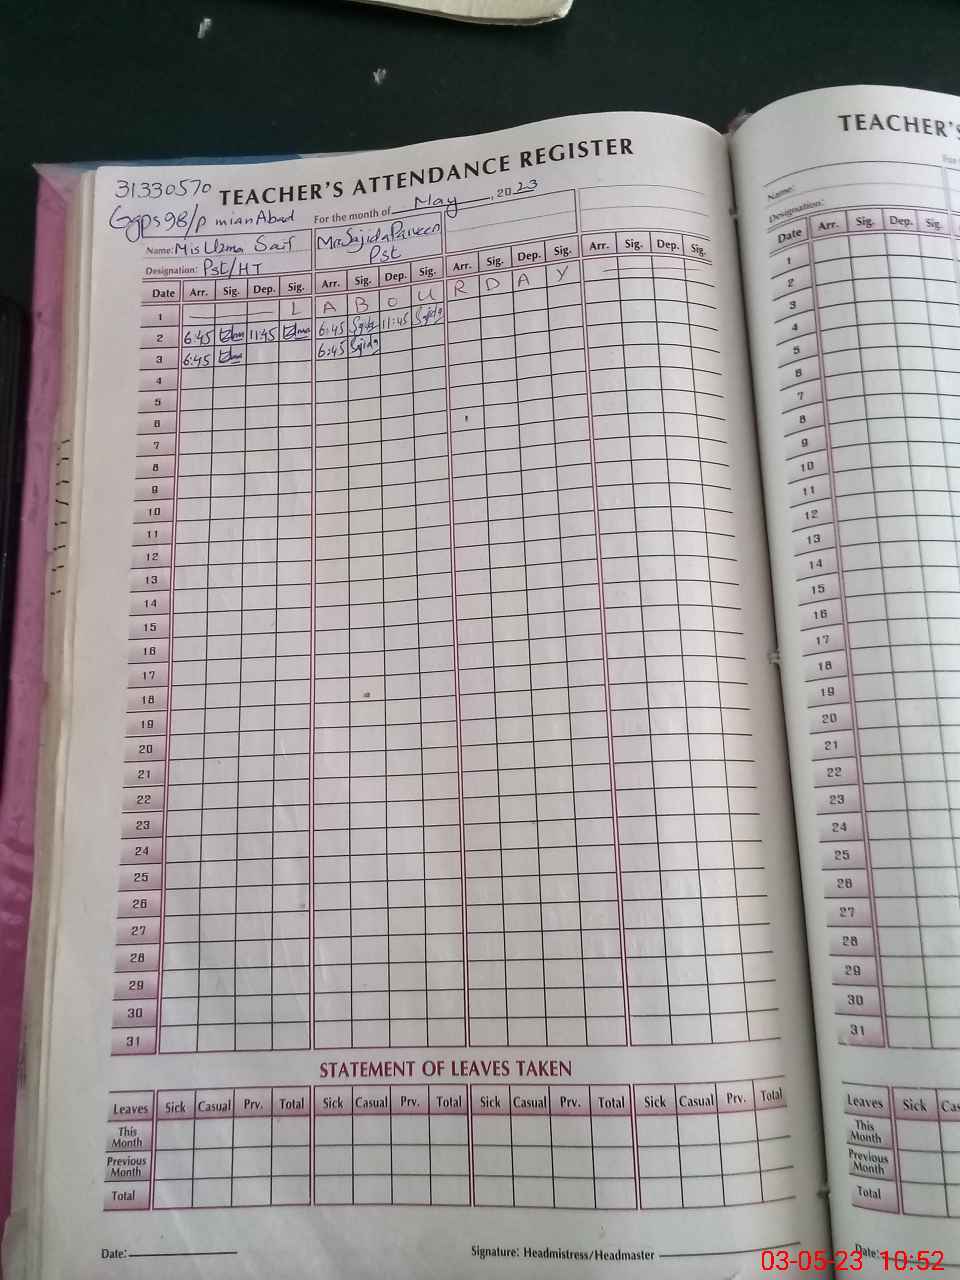 31330570 TEACHER'S ATTENDANCE REGISTER
Ggps98/p mianAbad For the month of May, 2023
Name: Mis Uzma Saif Mrs Sajida Parveen
Designation: Pst/HT Pst
Date Arr. Sig. Dep. Sig. Arr. Sig. Dep. Sig. Arr. Sig. Dep. Sig. Arr. Sig. Dep. Sig.
1 L A B O U R D A Y
2 6:45 Uzma 11:45 Uzma 6:45 Sajida 11:45 Sajida
3 6:45 Uzma 6:45 Sajida
4
5
6
7
8
9
10
11
12
13
14
15
16
17
18
19
20
21
22
23
24
25
26
27
28
29
30
31
STATEMENT OF LEAVES TAKEN
Leaves Sick Casual Prv. Total Sick Casual Prv. Total Sick Casual Prv. Total Sick Casual Prv. Total
This Month
Previous Month
Total
Date: Signature: Headmistress/Headmaster
TEACHER'S
Name:
Designation:
Date Arr. Sig. Dep. Sig.
1
2
3
4
5
6
7
8
9
10
11
12
13
14
15
16
17
18
19
20
21
22
23
24
25
26
27
28
29
30
31
Leaves Sick
This Month
Previous Month
Total
Date:
03-05-23 10:52